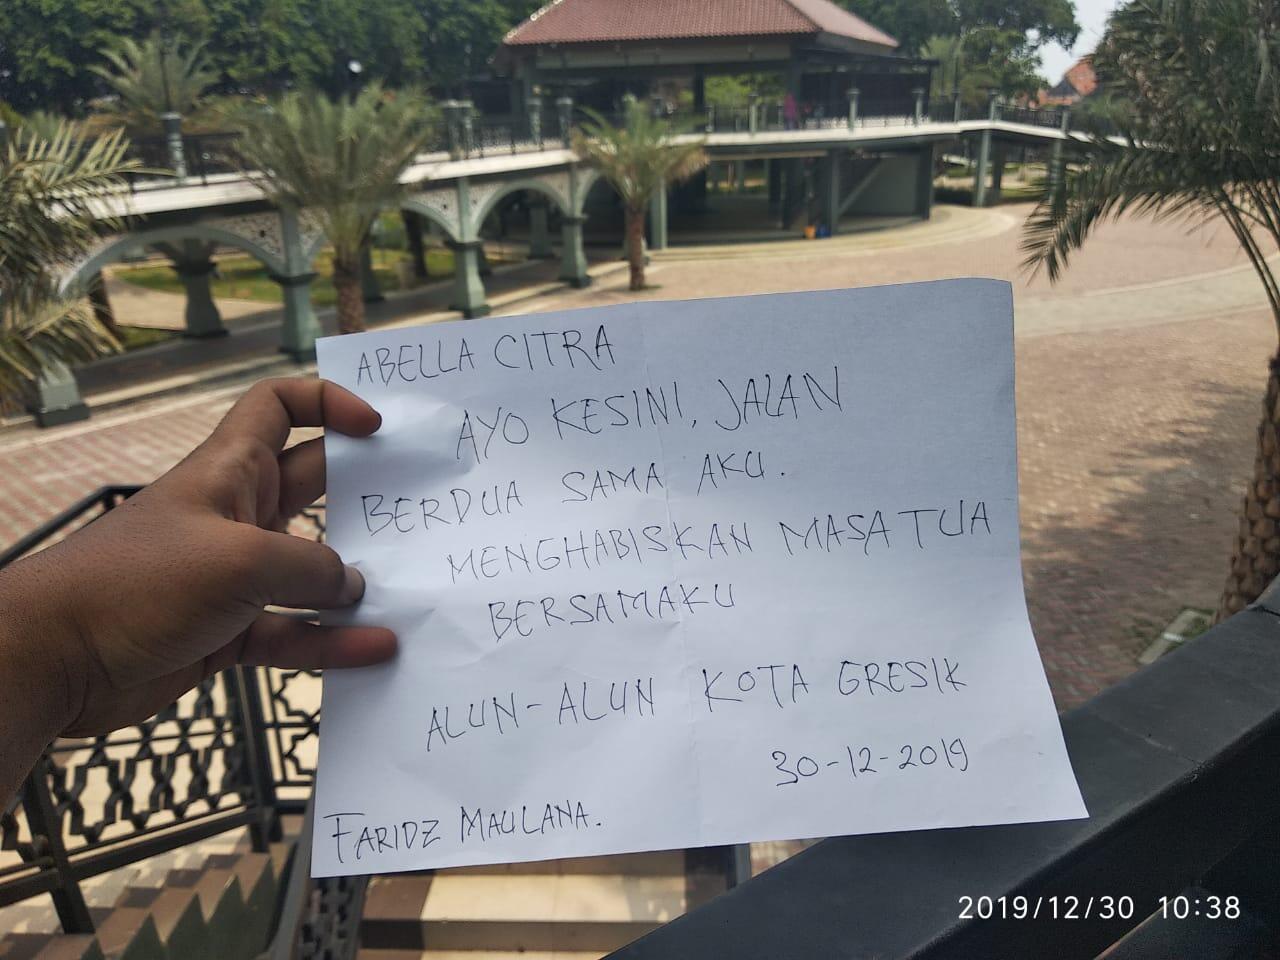 ABELLA CITRA
AYO KESINI, JALAN
BERDUA SAMA AKU.
MENGHABISKAN MASA TUA
BERSAMAKU
ALUN-ALUN KOTA GRESIK
30-12-2019
FARIDZ MAULANA.
2019/12/30 10:38